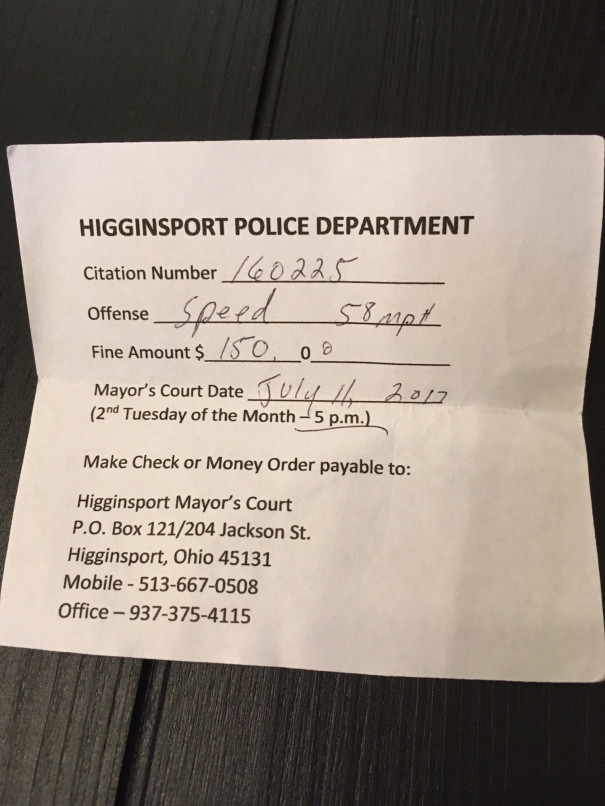 HIGGINSPORT POLICE DEPARTMENT
Citation Number 160225
Offense Speed 58 mpH
Fine Amount $ 150. 00
Mayor's Court Date July 11, 2017
(2nd Tuesday of the Month – 5 p.m.)
Make Check or Money Order payable to:
Higginsport Mayor's Court
P.O. Box 121/204 Jackson St.
Higginsport, Ohio 45131
Mobile - 513-667-0508
Office – 937-375-4115